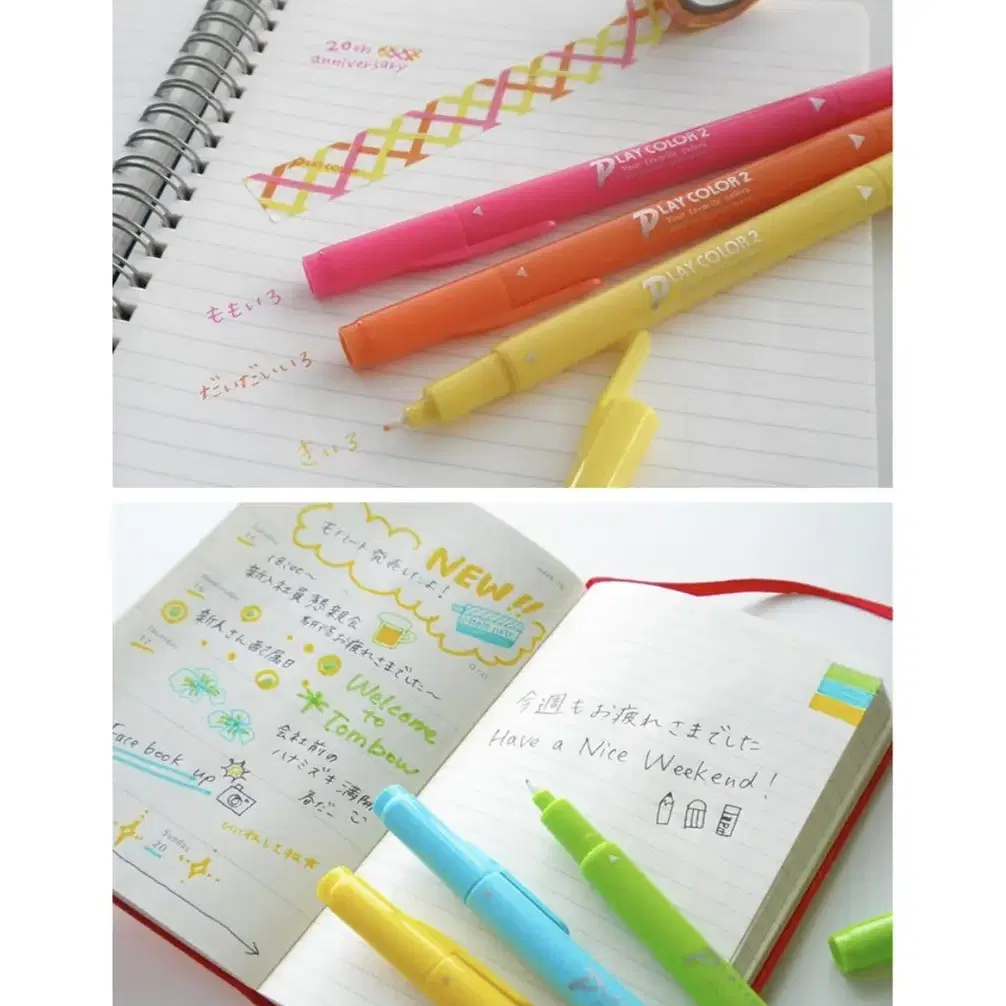 20th
anniversary
PLAY COLOR 2
Your favorite colors
PLAY COLOR 2
Your favorite colors
PLAY COLOR 2
ももいろ
だいだいいろ
きいろ
モノノート発売したよ!
NEW!!
18:00〜
新入社員懇親会
研修お疲れさまでした〜
Thursday
17
新人さん配属日
Welcome
to
Tombow
会社前の
ハナミズキ満開
春だー
Face book up
いいねしてね★
Sunday
20
今週もお疲れさまでした
Have a Nice Weekend!